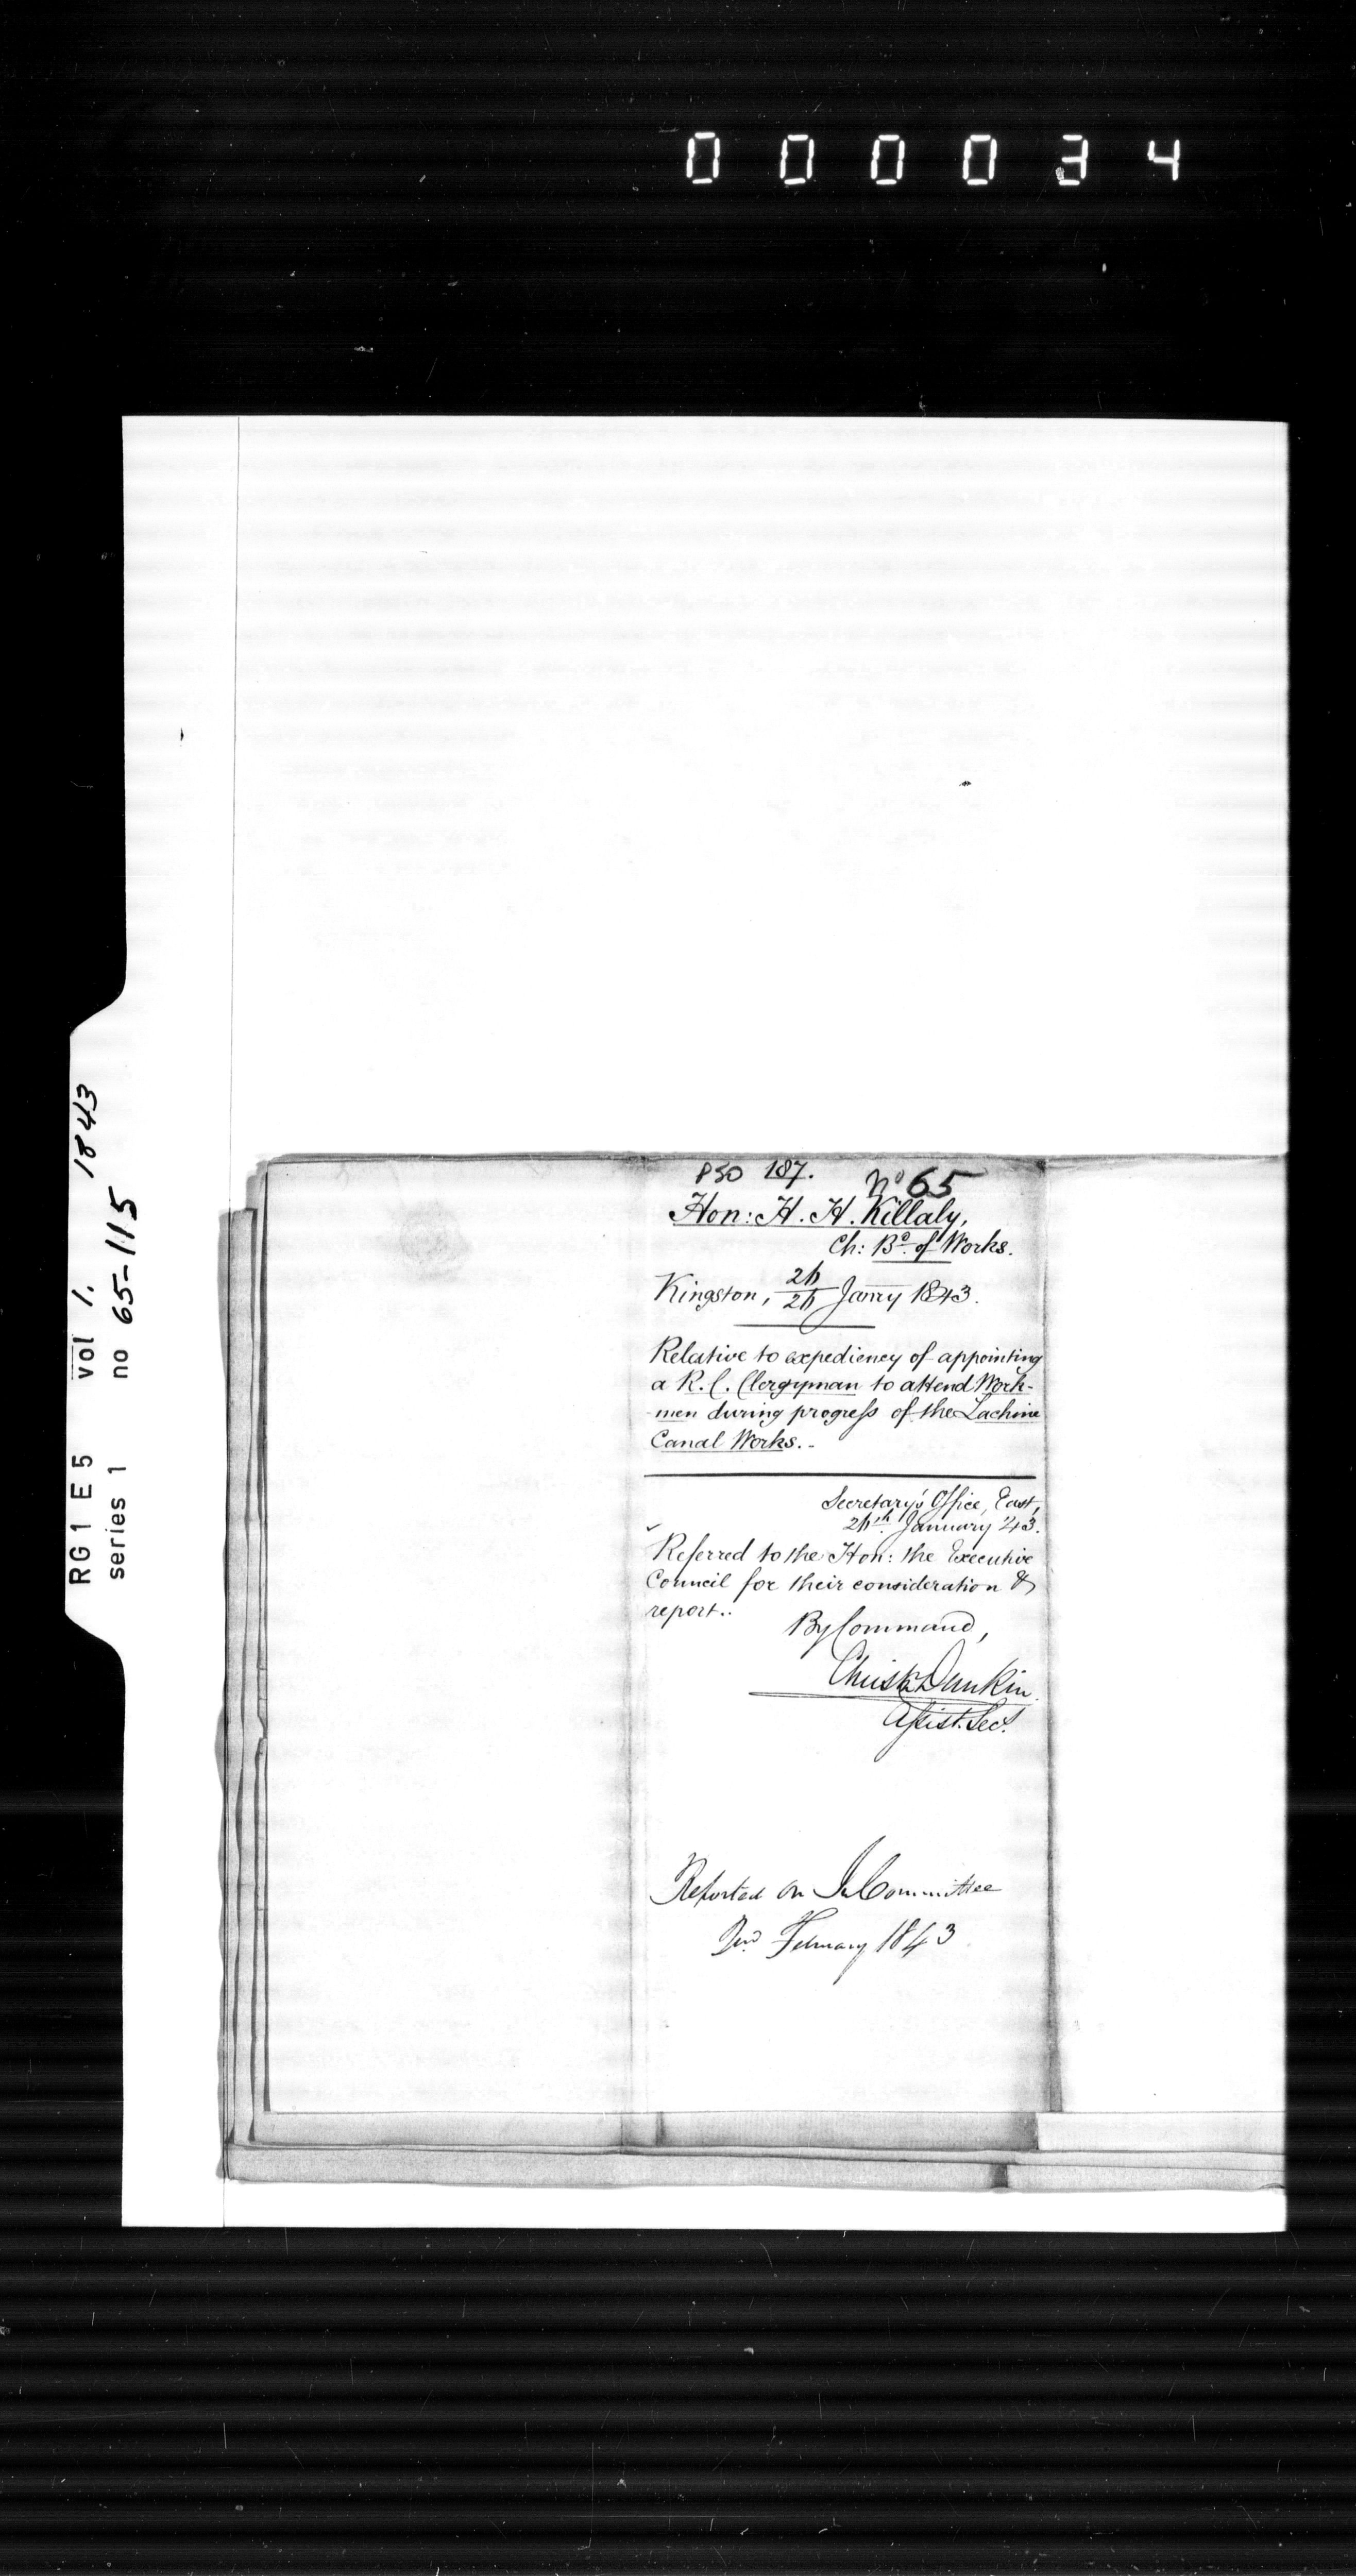 0 0 0 0 3 4
RG1 E5 vol 1. 1843
series 1 no 65-115
850 187. No 65
Hon: H. H. Killaly,
Ch: Bd. of Works.
Kingston, Janry 1843.
Relative to expediency of appointing
a R. C. Clergyman to attend Work-
-men during progress of the Lachine
Canal Works.-
Secretary's Office, East,
January '43.
Referred to the Hon: the Executive
Council for their consideration &
report..
By Command,
Christr Dunkin
Assist. Secy.
Reported on In Committee
February 1843